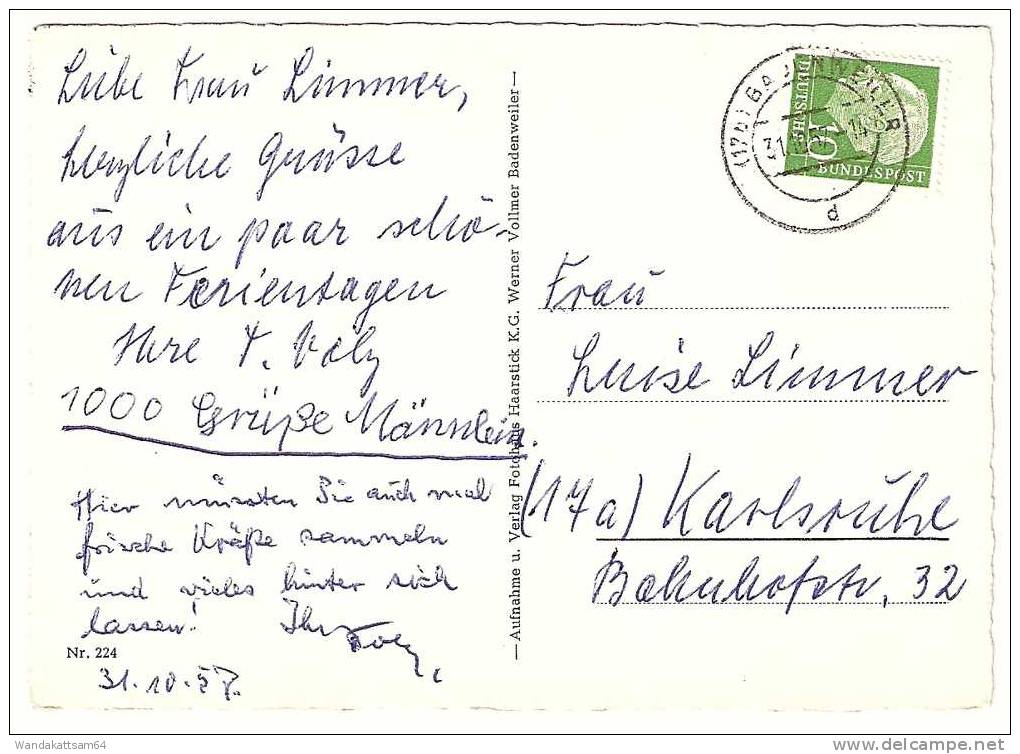 Liebe Frau Limmer,
herzliche Grüsse
aus ein paar schö-
nen Ferientagen
Ihre F. Volz
1000 Grüße Männlein.
Hier müssten Sie auch mal
frische Kräfte sammeln
und vieles hinter sich
lassen! Ihr Volz
Nr. 224
31.10.57.
—Aufnahme u. Verlag Fotohaus Haarstick K.G. Werner Vollmer Badenweiler—
(17b) BADENWEILER
d
DEUTSCHE
10
BUNDESPOST
Frau
Luise Limmer
(17a) Karlsruhe
Bahnhofstr. 32
Wandakattsam64
www.delcampe.net